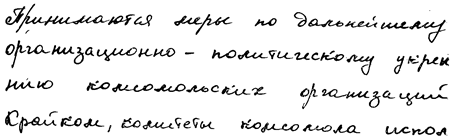 Принимаются меры по дальнейшему
организационно - политическому укреп
нию комсомольских организаций
Крайком, комитеты комсомола испол